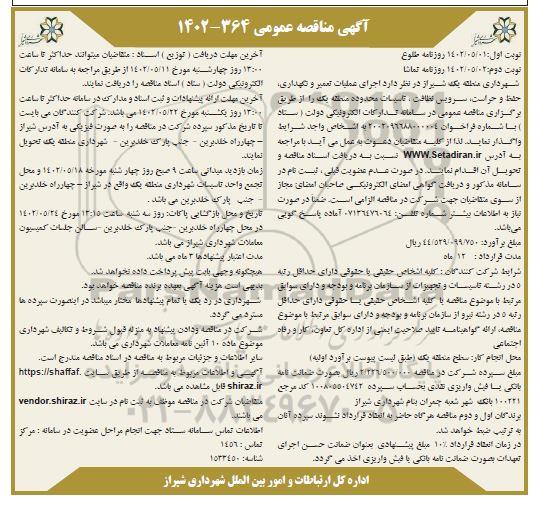 آگهی مناقصه عمومی ۳۶۴-۱۴۰۲
نوبت اول:۱۴۰۲/۰۵/۰۱ روزنامه طلوع
نوبت دوم:۱۴۰۲/۰۵/۰۲ روزنامه تماشا
شهرداری منطقه یک شیراز در نظر دارد اجرای عملیات تعمیر و نگهداری،
حفظ و حراست، سرویس نظافت، تاسیسات محدوده منطقه یک را از طریق
برگزاری مناقصه عمومی در سامانه تدارکات الکترونیکی دولت ( ستاد
) با شماره فراخوان به اشخاص واجد شرایط
واگذار نمایند. لذا از کلیه متقاضیان دعوت به عمل می آید با مراجعه
به آدرس WWW.Setadiran.ir نسبت به دریافت اسناد مناقصه و
تحویل آن اقدام نمایند. در صورت عدم عضویت قبلی ، ثبت نام در
سامانه مذکور و دریافت گواهی امضای الکترونیکی صاحبان امضای مجاز
از سوی متقاضیان جهت شرکت در مناقصه الزامی است. ضمنا در صورت
نیاز به اطلاعات بیشتر شماره تلفن: ۰۷۱۳۶۴۷۹۰۶۴ آماده پاسخ گویی
می‌باشد.
مبلغ برآورد: ۴۴/۵۲۹/۰۹۹/۷۵۰ ریال
مدت قرارداد: ۱۲ ماه
شرایط شرکت کنندگان : کلیه اشخاص حقیقی یا حقوقی دارای حداقل رتبه
۵ در رشته تاسیسات و تجهیزات از سازمان برنامه و بودجه و دارای سوابق
مرتبط با موضوع مناقصه یا کلیه اشخاص حقیقی یا حقوقی دارای حداقل
رتبه ۵ در رشته نیرو از سازمان برنامه و بودجه و دارای سوابق مرتبط با موضوع
مناقصه، ارائه گواهینامه تایید صلاحیت ایمنی از اداره کل تعاون، کار و رفاه
اجتماعی
محل انجام کار: سطح منطقه یک (طبق لیست پیوست برآورد اولیه)
مبلغ سپرده شرکت در مناقصه ۲/۲۲۶/۵۰۰/۰۰۰ ریال بصورت ضمانت نامه
بانکی یا فیش واریزی نقدی بحساب سپرده ۱۰۰۸۰۵۵۰۴۷۴۲ کد مرجع
۱۰۰۲۲۱ بانک شهر شعبه چمران بنام شهرداری شیراز
برندگان اول و دوم مناقصه هرگاه حاضر به انعقاد قرارداد نشوند سپرده آنان
به ترتیب ضبط خواهد شد.
در زمان انعقاد قرارداد ۱۰٪ مبلغ پیشنهادی بعنوان ضمانت حسن اجرای
تعهدات بصورت ضمانت نامه بانکی یا فیش واریزی اخذ می گردد.
آخرین مهلت دریافت ( توزیع ) اسناد : متقاضیان میتوانند حداکثر تا ساعت
۱۳:۰۰ روز چهارشنبه مورخ ۱۴۰۲/۰۵/۱۱ از طریق مراجعه به سامانه تدارکات
الکترونیکی دولت (ستاد ) اسناد مناقصه را دریافت نمایند.
آخرین مهلت ارائه پیشنهادات و ثبت اسناد و مدارک در سامانه حداکثر تا ساعت
۱۳:۰۰ روز یکشنبه مورخ ۱۴۰۲/۰۵/۲۲ می باشد. شرکت کنندگان می بایست
تا تاریخ مذکور سپرده شرکت در مناقصه را به صورت فیزیکی به آدرس شیراز
– چهارراه خلدبرین – جنب پارک خلدبرین – شهرداری منطقه یک تحویل
نمایند.
زمان بازدید میدانی ساعت ۹ صبح روز چهار شنبه مورخه ۱۴۰۲/۰۵/۱۸ و محل
تجمع واحد تاسیسات شهرداری منطقه یک واقع در شیراز – چهارراه خلدبرین
- جنب پارک خلدبرین می باشد .
تاریخ و محل بازگشایی پاکات: روز سه شنبه ساعت ۱۳:۱۵ مورخ ۱۴۰۲/۰۵/۲۴
در محل چهارراه خلدبرین -جنب پارک خلدبرین –سالن جلسات کمیسیون
معاملات شهرداری شیراز می باشد.
مدت اعتبار پیشنهادها ۳ ماه می باشد.
هیچگونه وجهی بابت پیش پرداخت داده نخواهد شد.
بدیهی است هزینه آگهی بعهده برنده مناقصه خواهد بود.
شهرداری در رد یک یا تمام پیشنهادها مختار میباشد در اینصورت سپرده ها
مسترد می گردد.
شرکت در مناقصه و دادن پیشنهاد به منزله قبول شروط و تکالیف شهرداری
موضوع ماده ۱۰ آئین نامه معاملات شهرداری می باشد.
سایر اطلاعات و جزئیات مربوط به مناقصه در اسناد مناقصه مندرج است.
آگهی و اطلاعات مربوط به مناقصه از طریق سایت https://shaffaf.
shiraz.ir قابل مشاهده می باشد.
متقاضیان شرکت در مناقصه موظف به ثبت نام در سایت vendor.shiraz.ir
می باشند.
اطلاعات تماس سامانه ستاد جهت انجام مراحل عضویت در سامانه : مرکز
تماس : ۱۴۵۶
شناسه: ۱۵۳۳۴۵۰
اداره کل ارتباطات و امور بین الملل شهرداری شیراز